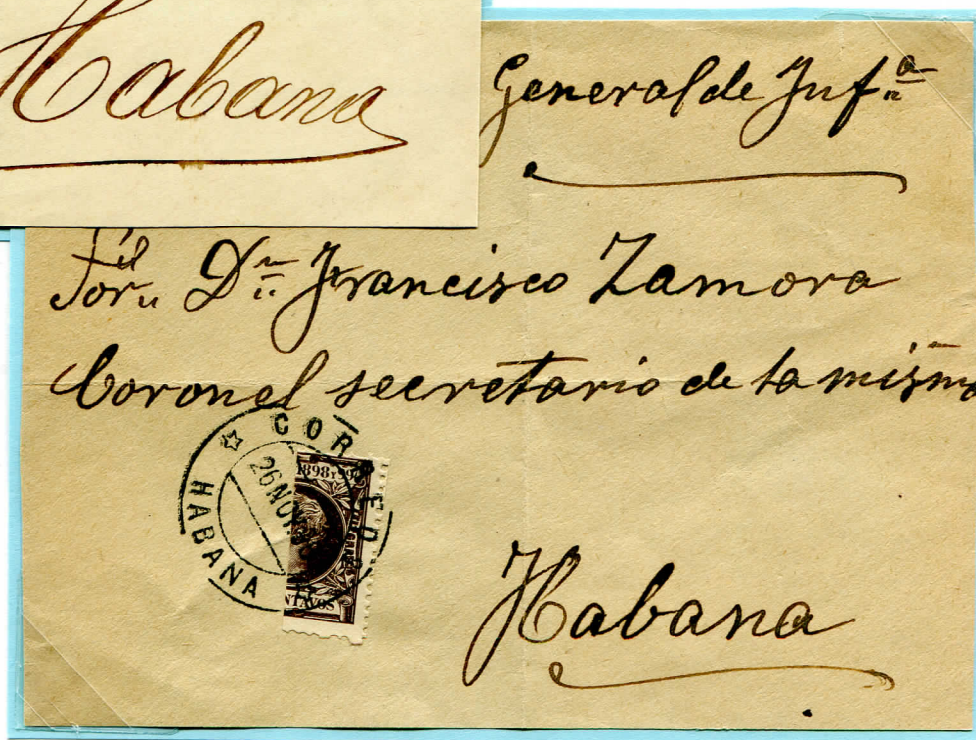 Habana
General de Infª
Dn Francisco Zamora
Coronel secretario de la misma
CORREOS
HABANA
26 NOV
1898 Y 99
NTAVOS
Habana